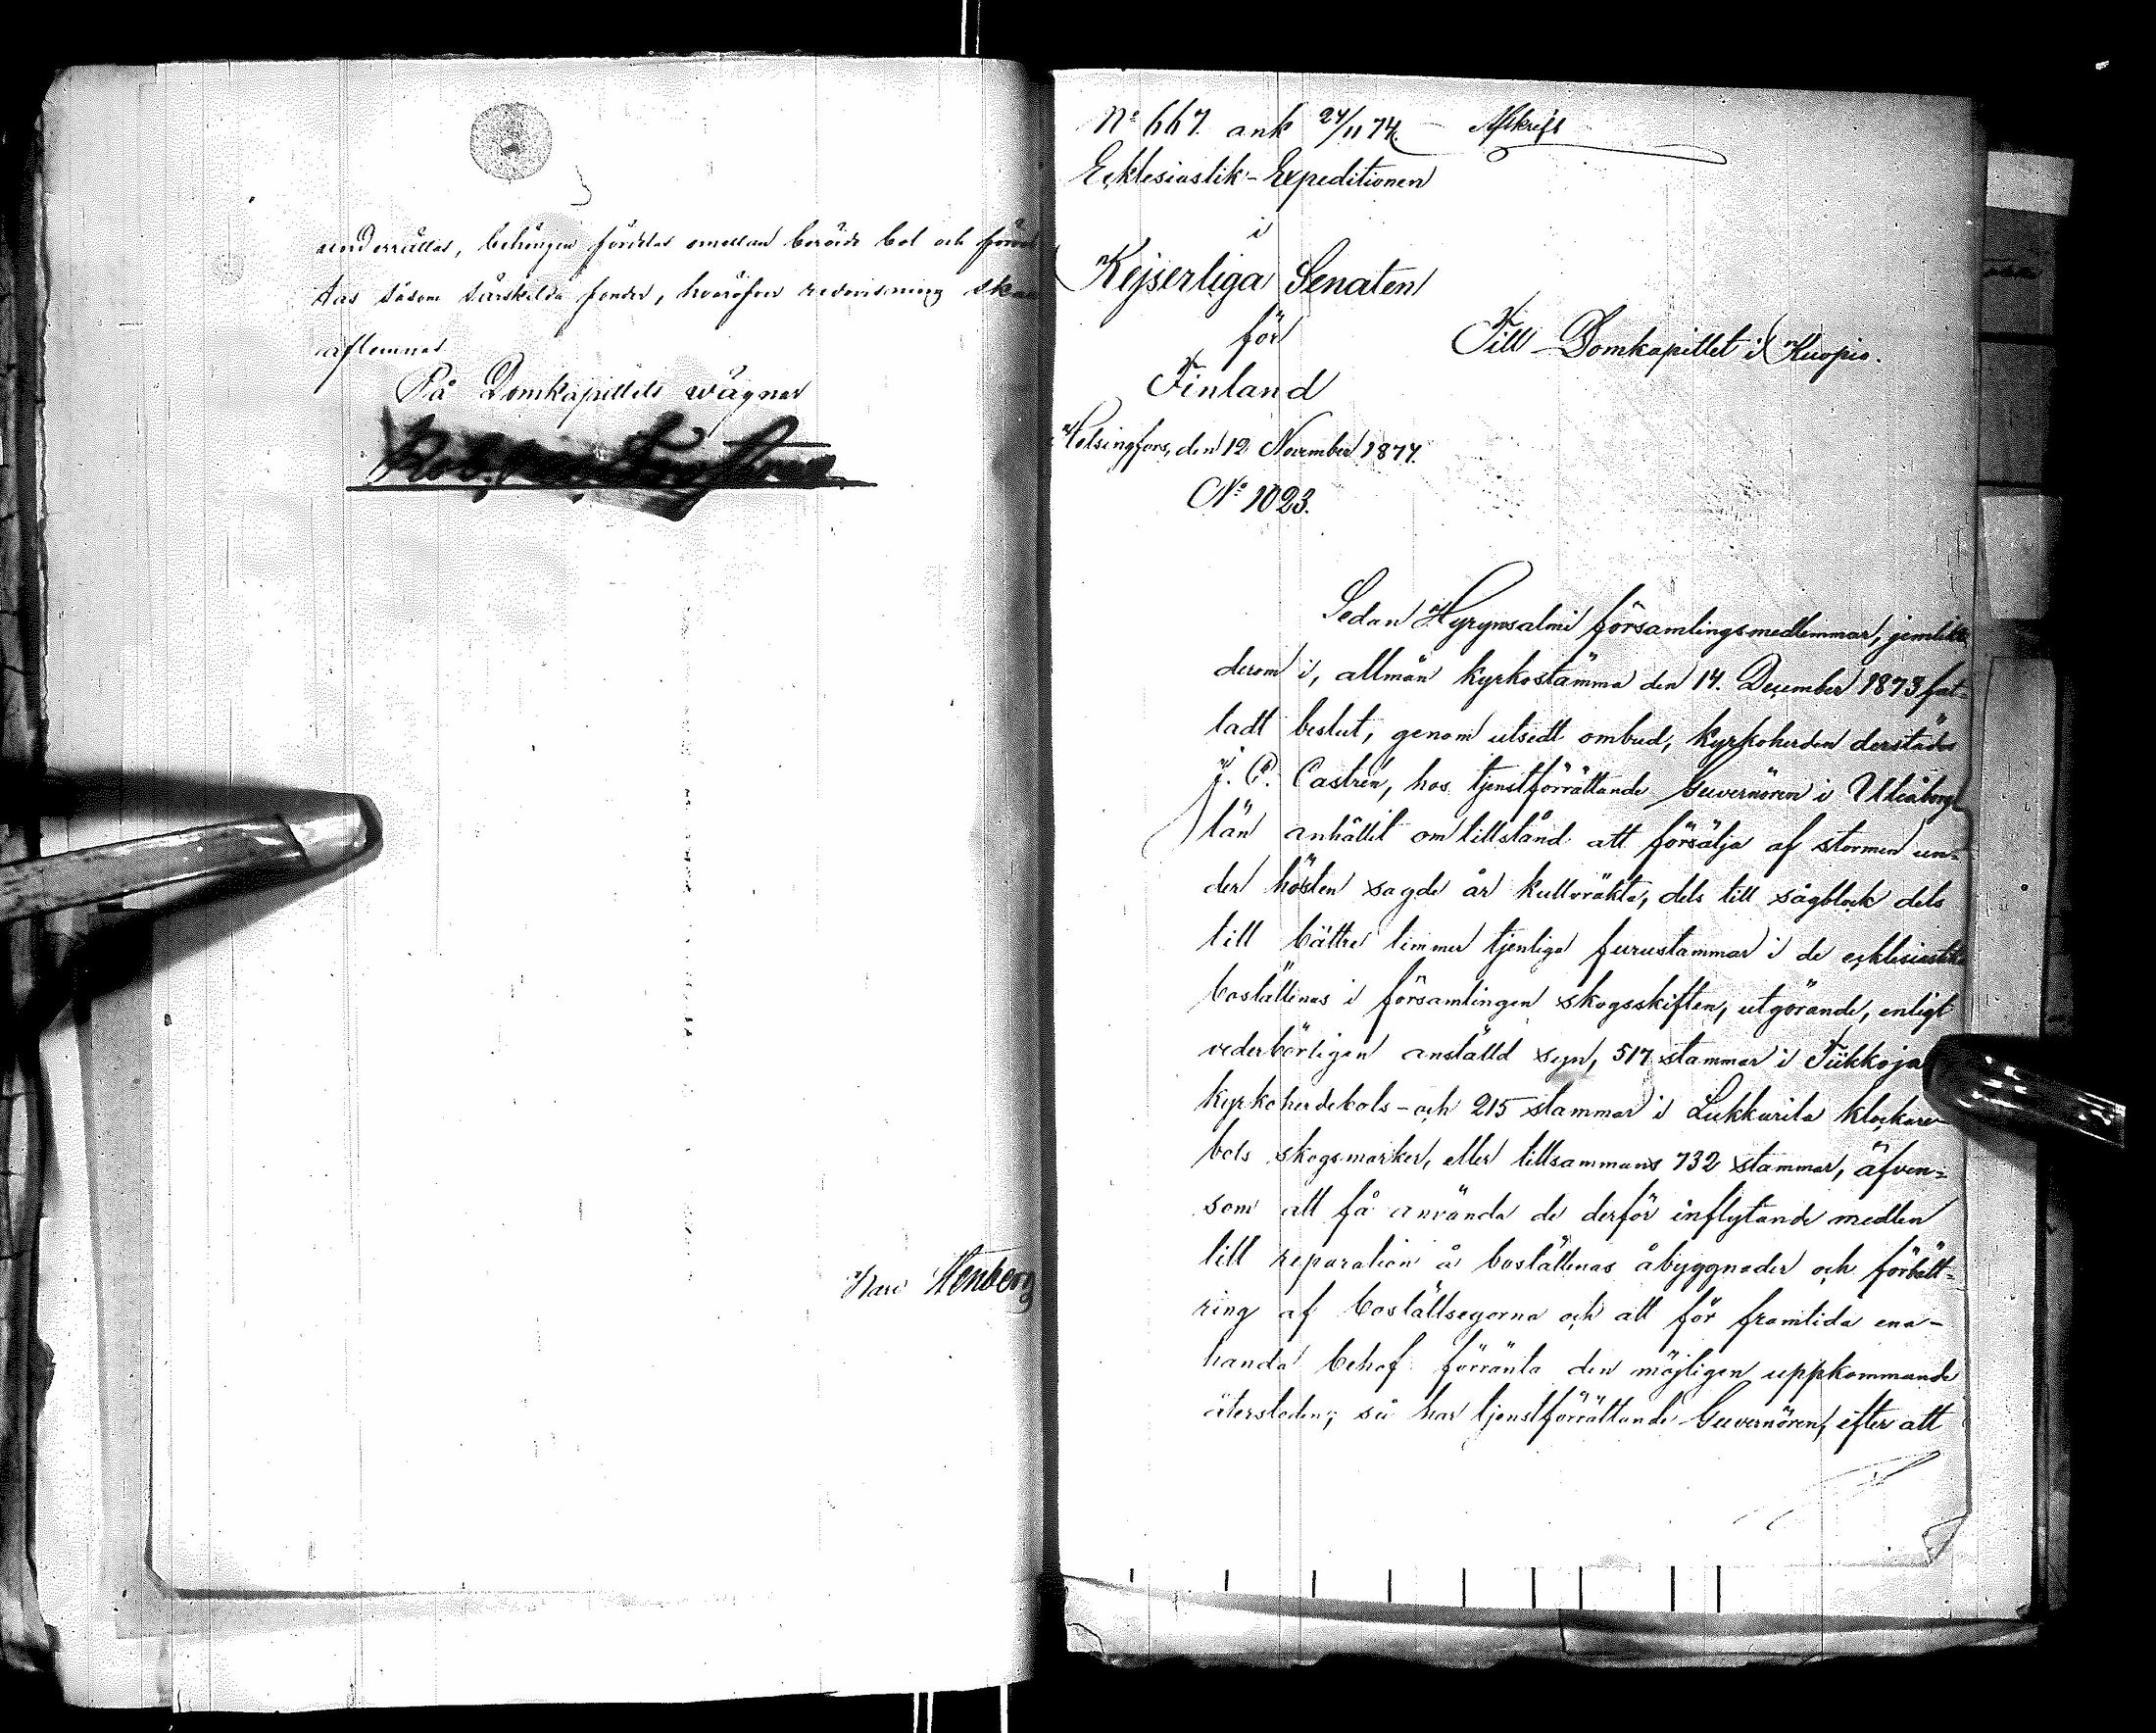 underrättas, behöriga fördelas emellan berörde bol och förval
tas såsom särskilda fonder, hvaröfver redovisning skall
aflemnas
På Domkapitlets wägnar
Stenberg
N:o 667. ank 24/11 74. Afskrift
Ecklesiastik-Expeditionen
i
Kejserliga Senaten
för
Finland
Till Domkapitlet i Kuopio.
Helsingfors, den 12 November 1874.
N:o 1023.
Sedan Hyrynsalmi församlingsmedlemmar, jemlikt
derom i, allmän kyrkostämma den 14. December 1873 fat-
tadt beslut, genom utsedt ombud, kyrkoherden derstädes
J. C. Castrén, hos tjenstförrättande Guvernören i Uleåborgs
län anhållit om tillstånd att försälja af stormen un-
der hösten sagde år kullvräkta, dels till sågblock dels
till bättre timmer tjenliga furustammar i de ecklesiastika
boställenas i församlingen skogsskiften, utgörande, enligt
vederbörligen anställd syn, 517 stammar i Tükkoja
kyrkoherdebols- och 215 stammar i Lukkarila klockare-
bols skogsmarker, eller tillsammans 732 stammar, äfven-
som att få använda de derför inflytande medlen
till reparation å boställenas åbyggnader och förbätt-
ring af boställsegorna och att för framtida ena-
handa behof förränta den möjligen uppkommande
återstoden; så har tjenstförrättande Guvernören, efter att